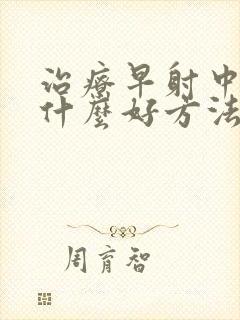 治療早射中
什麼好方法
周育智